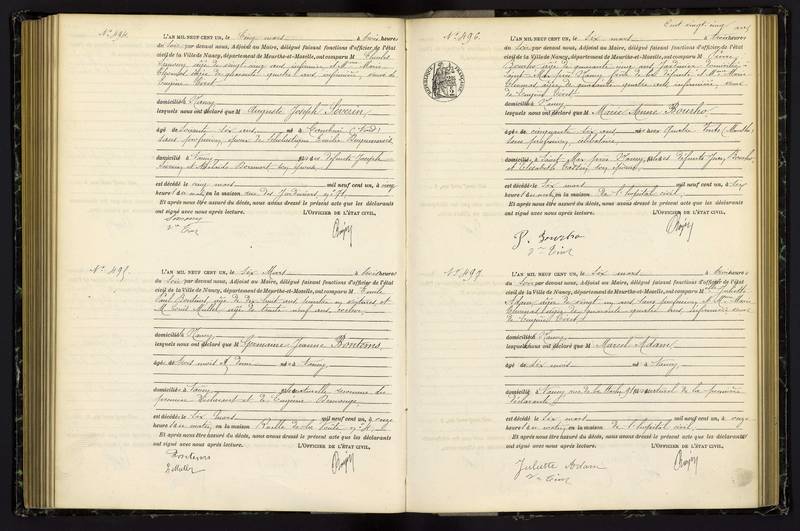 N° 494.
L'AN MIL NEUF CENT UN, le Cinq mars à trois heures
du soir par devant nous, Adjoint au Maire, délégué faisant fonctions d'officier de l'état
civil de la Ville de Nancy, département de Meurthe-et-Moselle, ont comparu M Charles
âgé de vingt cinq ans, infirmier et Mme Marie
âgée de quarante quatre ans infirmière, veuve de
Eugène
domiciliés Nancy
lesquels nous ont déclaré que M Auguste Joseph Severin
âgé de soixante six ans, né à Cambrai (Nord)
sans profession, époux de
domicilié à Nancy fils des défunts Joseph
Severin et Adélaïde son épouse
est décédé le cinq mars mil neuf cent un, à onze
heures du matin en la maison rue des Jardiniers n° 71
Et après nous être assuré du décès, nous avons dressé le présent acte que les déclarants
ont signé avec nous après lecture. L'OFFICIER DE L'ÉTAT CIVIL,
N° 495.
L'AN MIL NEUF CENT UN, le Six Mars à trois heures
du soir par devant nous, Adjoint au Maire, délégué faisant fonctions d'officier de l'état
civil de la Ville de Nancy, département de Meurthe-et-Moselle, ont comparu M Emile
Paul Bontems âgé de dix huit ans
M Louis Muller âgé de trente neuf ans,
domiciliés Nancy
lesquels nous ont déclaré que M Germaine Jeanne Bontems,
âgée de trois mois et demi née à Nancy
domiciliée à Nancy fille naturelle reconnue du
premier déclarant et de Eugénie
est décédée le Six Mars mil neuf cent un, à onze
heures du matin, en la maison Ruelle de la
Et après nous être assuré du décès, nous avons dressé le présent acte que les déclarants
ont signé avec nous après lecture. L'OFFICIER DE L'ÉTAT CIVIL,
Bontems
L Muller
Cent vingt cinq
N° 496.
L'AN MIL NEUF CENT UN, le Six mars à trois heures
du soir par devant nous, Adjoint au Maire, délégué faisant fonctions d'officier de l'état
civil de la Ville de Nancy, département de Meurthe-et-Moselle, ont comparu M Pierre
Bourho âgé de quarante cinq ans, jardinier domicilié à
Saint-Max près Nancy frère de la défunte et Mme Marie
âgée de quarante quatre ans infirmière, veuve
de Eugène
domiciliée Nancy
lesquels nous ont déclaré que M Marie Anne Bourho
âgée de cinquante six ans née à (Meurthe)
sans profession, célibataire
domiciliée à Saint Max près Nancy, fille des défunts Jean Bourho
et Elisabeth son épouse
est décédée le Six mars mil neuf cent un, à six
heures du matin en la maison de l'hôpital civil
Et après nous être assuré du décès, nous avons dressé le présent acte que les déclarants
ont signé avec nous après lecture. L'OFFICIER DE L'ÉTAT CIVIL,
P. Bourho
N° 497.
L'AN MIL NEUF CENT UN, le Six mars à trois heures
du soir par devant nous, Adjoint au Maire, délégué faisant fonctions d'officier de l'état
civil de la Ville de Nancy, département de Meurthe-et-Moselle, ont comparu Mlle Juliette
Adam, âgée de vingt un ans sans profession, et Mme Marie
âgée de quarante quatre ans infirmière veuve
de Eugène
domiciliées Nancy
lesquelles nous ont déclaré que M Marcel Adam
âgé de six mois né à Nancy
domicilié à Nancy rue de la fils naturel de la première
déclarante
est décédé le Six mars mil neuf cent un, à onze
heures du matin, en la maison de l'hôpital civil
Et après nous être assuré du décès, nous avons dressé le présent acte que les déclarants
ont signé avec nous après lecture. L'OFFICIER DE L'ÉTAT CIVIL,
Juliette Adam